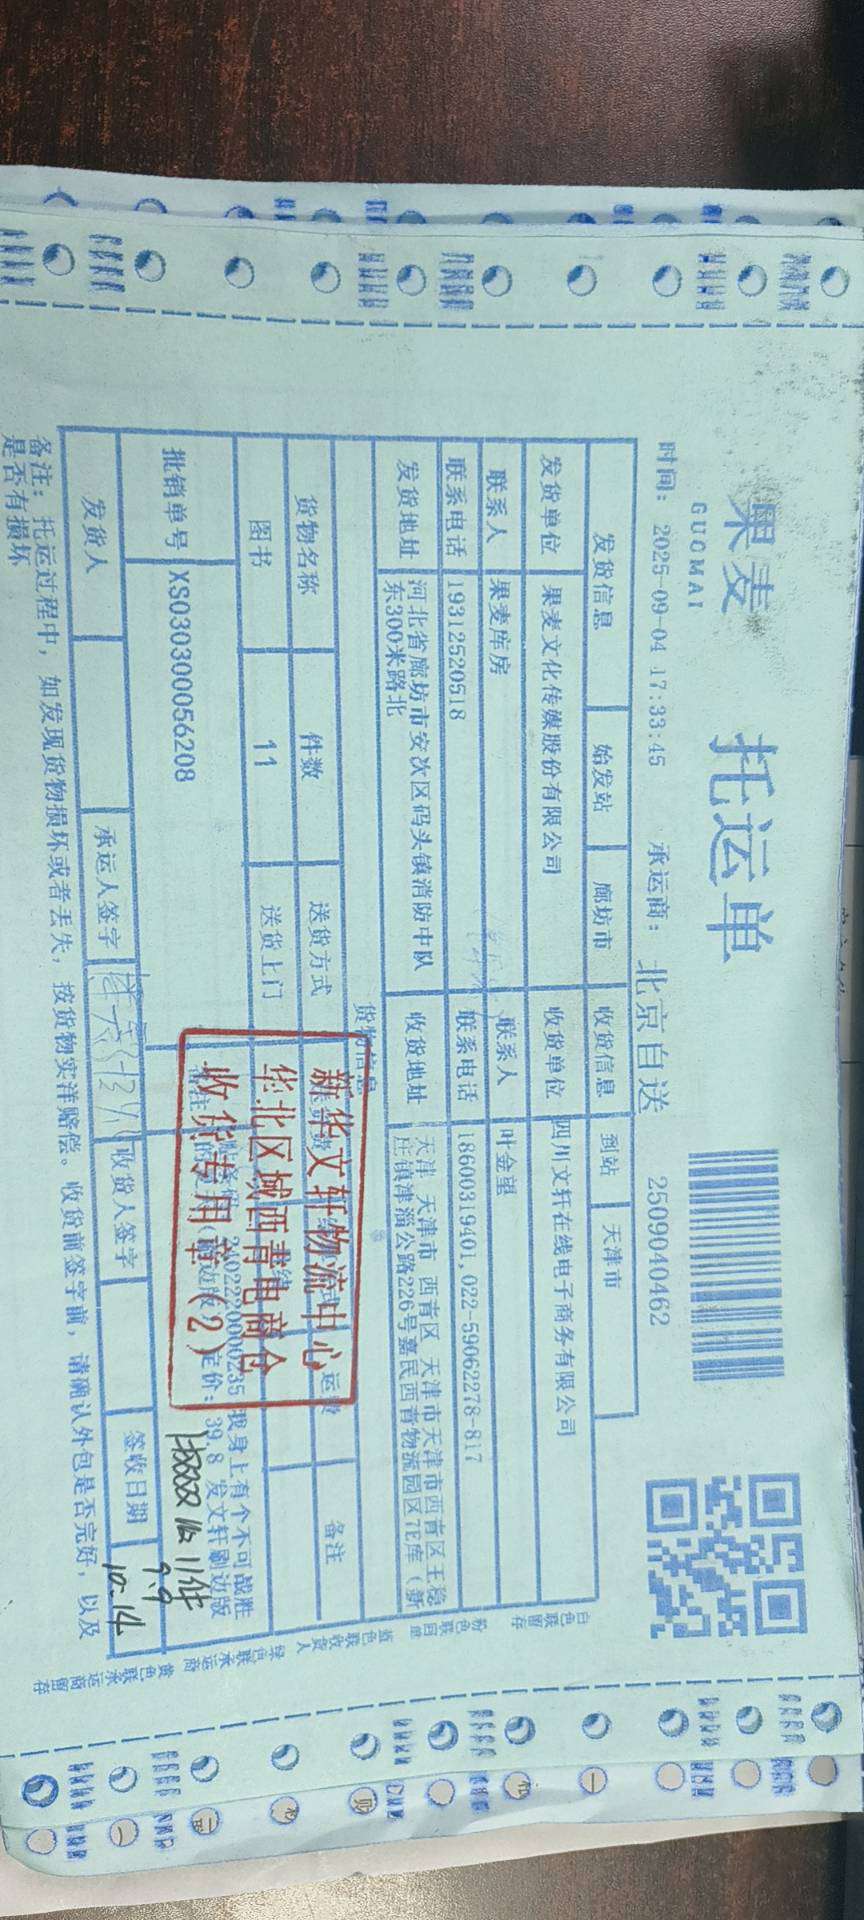 果麦 托运单
GUOMAI
时间: 2025-09-04 17:33:45 承运商: 北京自送 2509040462
发货信息 始发站 廊坊市 收货信息 到站 天津市
发货单位 果麦文化传媒股份有限公司 收货单位 四川文轩在线电子商务有限公司
联系人 果麦库房 联系人 叶金望
联系电话 19312520518 联系电话 18600319401,022-59062278-817
发货地址 河北省廊坊市安次区码头镇消防中队东300米路北 收货地址 天津 天津市 西青区 天津市天津市西青区王稳庄镇津淄公路226号嘉民西青物流园区7E库(新
货物信息
货物名称 件数 送货方式 运费 备注
图书 11 送货上门
批销单号 XS030300056208 我身上有个不可战胜
定价: 39.8 发文轩刷边版
新华文轩物流中心
华北区域西青电商仓
收货专用章(2)
11件
9.9
发货人 承运人签字 收货人签字 签收日期 10.14
备注: 托运过程中, 如发现货物损坏或者丢失, 按货物实洋赔偿。收货前签字前, 请确认外包是否完好, 以及
是否有损坏
白色联留存
粉色联回单
蓝色联收货人
绿色联承运商
黄色联承运商留存